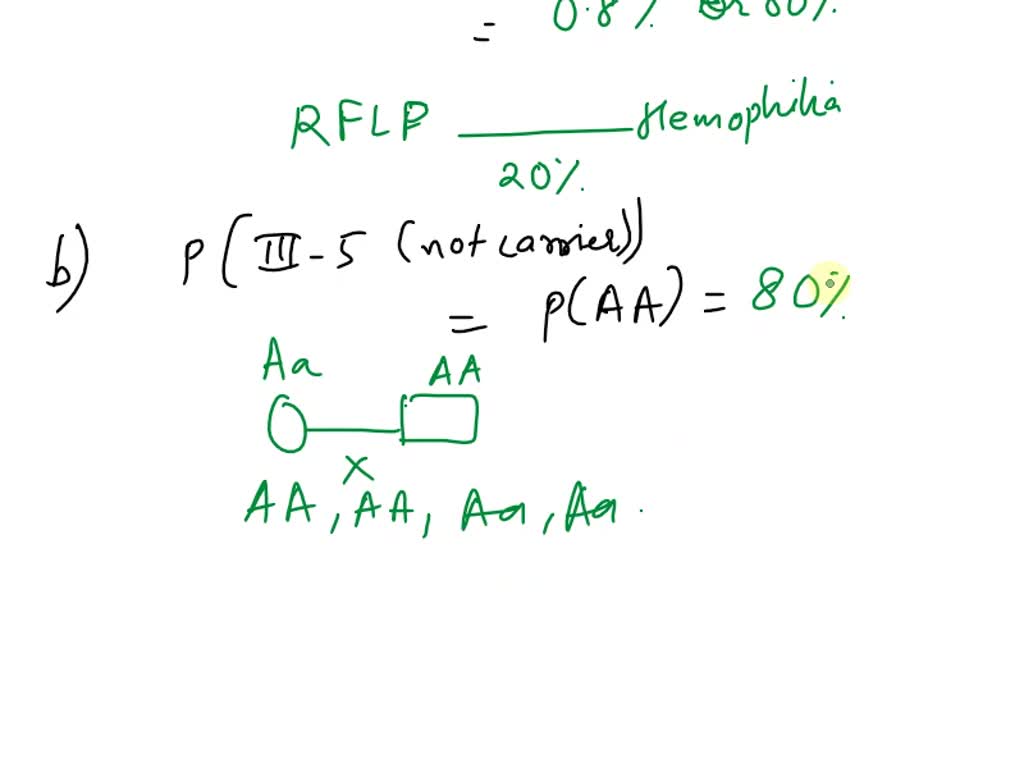 = 0.8% or 80%.
RFLP Hemophilia
20%.
b) P(III-5 (not carrier))
= P(AA) = 80%.
Aa AA
X
AA, AA, Aa, Aa.